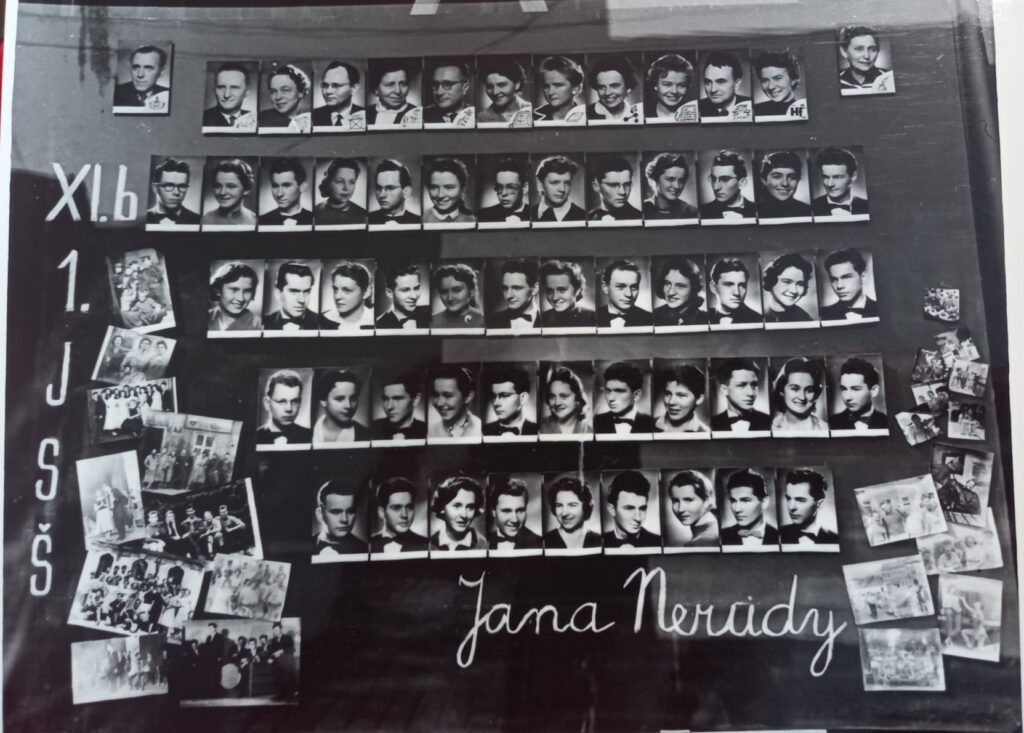 HF
XI.b
1.
J
S
Š
Jana Nerudy